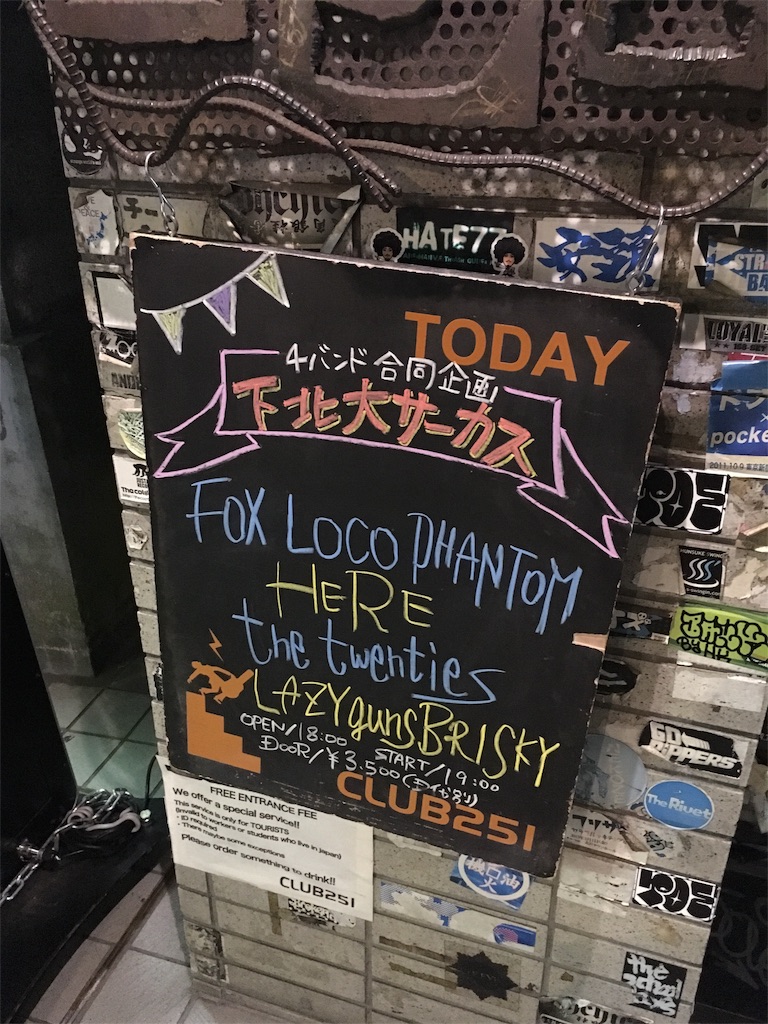 HATE77
TODAY
4バンド合同企画
下北大サーカス
FOX LOCO PHANTOM
HERE
the twenties
LAZYgunsBRISKY
OPEN/18:00 START/19:00
DOOR/¥3.500(D代別)
CLUB251
FREE ENTRANCE FEE
We offer a special service!!
This service is only for TOURISTS
(Invalid to workers or students who live in japan)
・ID required
・There maybe some exceptions
Please order something to drink!!
CLUB251
pocke
2011.10.9
GO RiPPERS
The Rivet